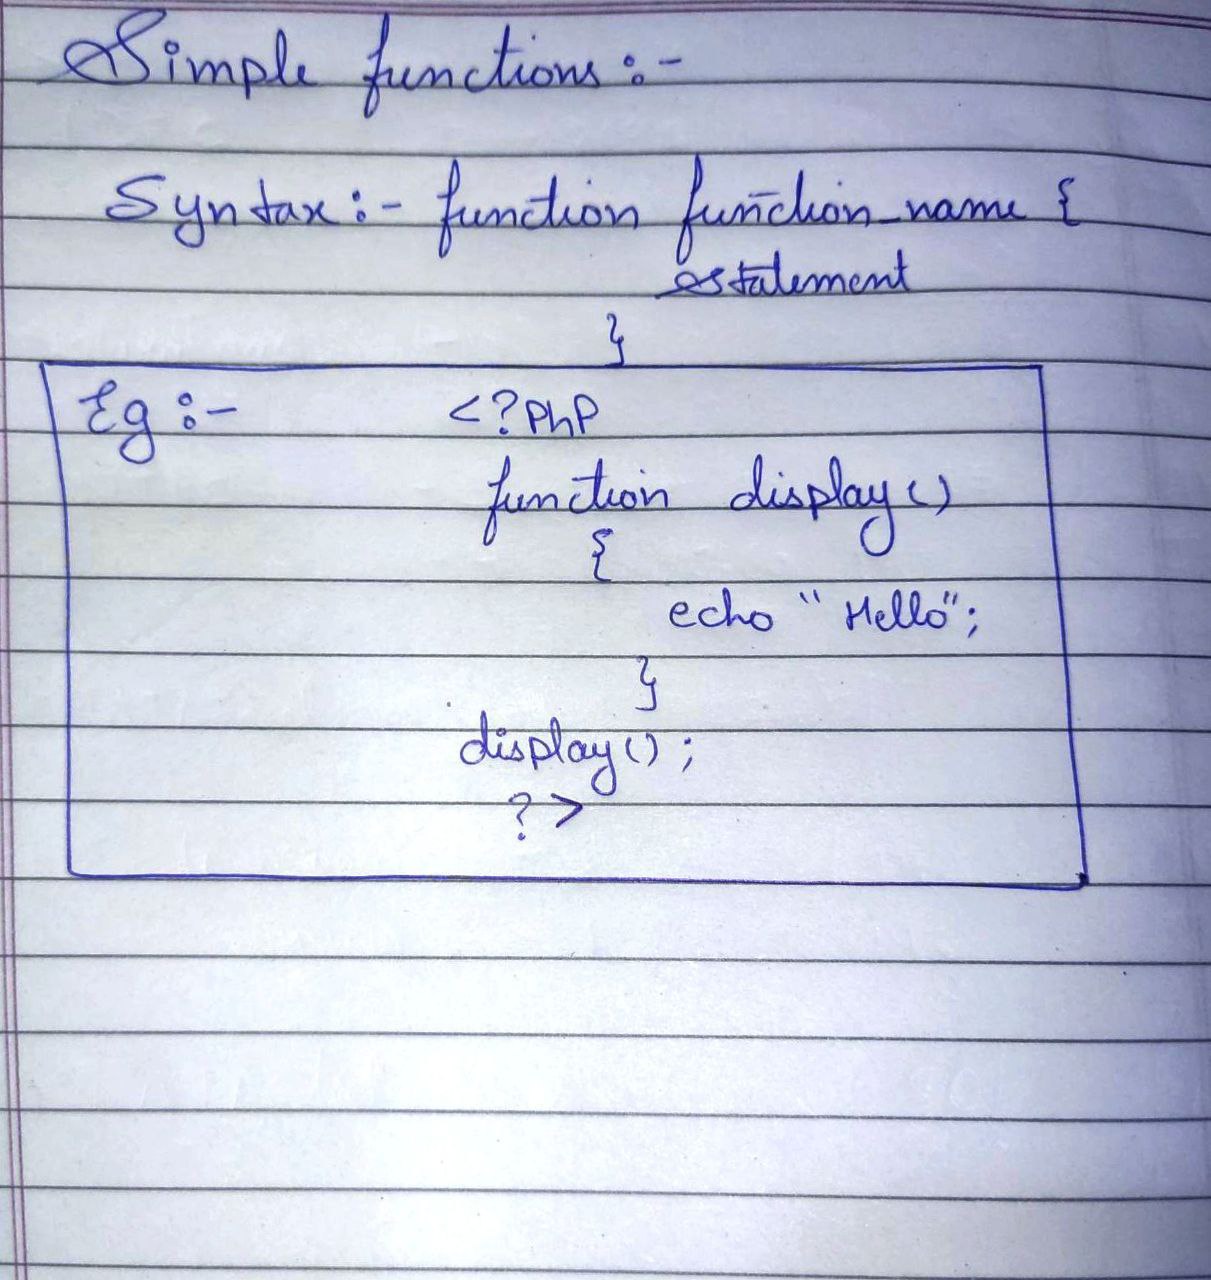 Simple functions :-
Syntax :- function function_name {
statement
}
Eg :- <?PhP
function display()
{
echo "Hello";
}
display();
?>